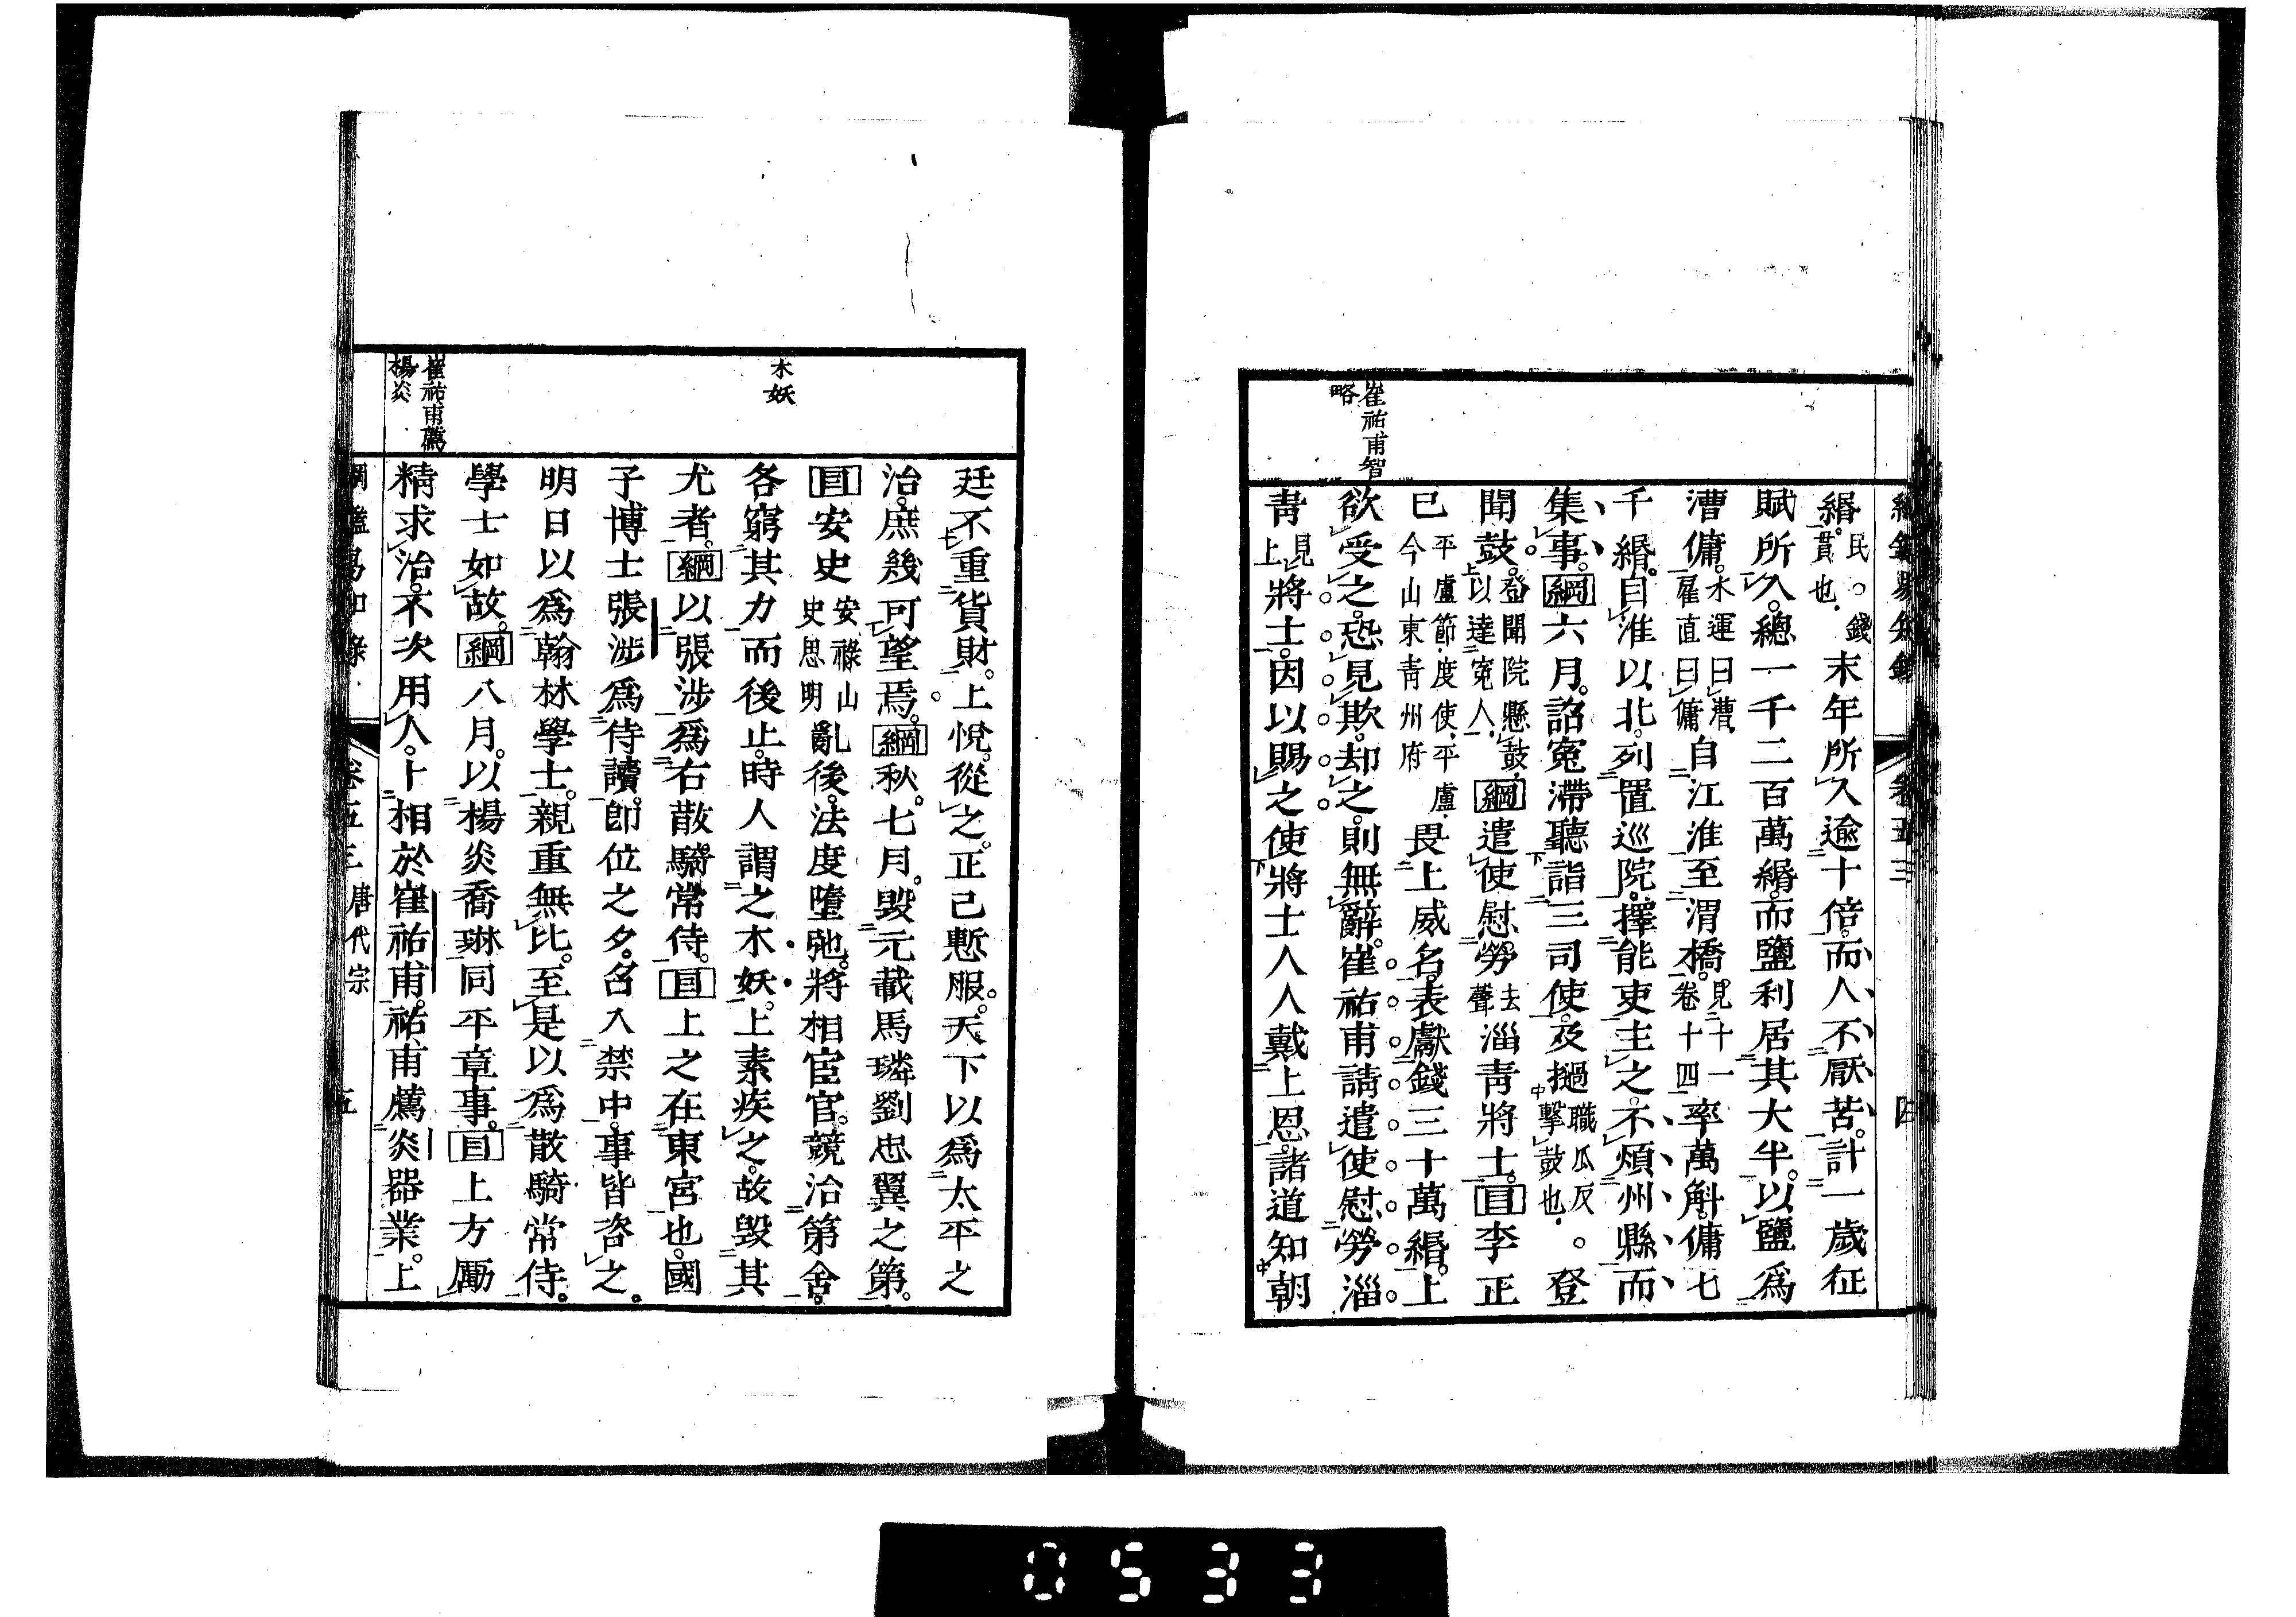 緡民。錢貫也。末年所入逾十倍。而人不厭苦。計一歲征
賦所入。總一千二百萬緡。而鹽利居其大半。以鹽爲
漕傭。水運曰漕。雇直曰傭。自江淮至渭橋。見十一卷十四率萬斛。傭七
千緡。自淮以北。列置巡院。擇能吏主之。不煩州縣而
集事。綱六月。詔冤滯聽詣三司使。及撾職瓜反。擊鼓也。登
聞鼓。登聞院懸鼓以達冤人。綱遣使慰勞去聲淄青將士。目李正
巳平盧節度使、平盧、今山東青州府畏上威名。表獻錢三十萬緡。上
欲受之。恐見欺。却之。則無辭。崔祐甫請遣使慰勞淄
青見上將士。因以賜之使將士人人戴上恩。諸道知朝
崔祐甫智
略
卷五三
四
廷不重貨財。上悅。從之。正己慙服。天下以爲太平之
治。庶幾可望焉。綱秋。七月。毀元載馬璘劉忠翼之第。
目安史安祿山史思明亂後。法度墮弛。將相宦官。競治第舍。
各窮其力而後止。時人謂之木妖。上素疾之。故毀其
尤者。綱以張涉爲右散騎常侍。目上之在東宮也。國
子博士張涉爲侍讀。卽位之夕。召入禁中。事皆咨之。
明日以爲翰林學士。親重無比。至是以爲散騎常侍。
學士如故。綱八月。以楊炎喬琳同平章事。目上方勵
精求治。不次用人。卜相於崔祐甫。祐甫薦炎器業。上
木妖
崔祐甫薦
楊炎
綱鑑易知錄 卷五三 唐代宗 五
0533